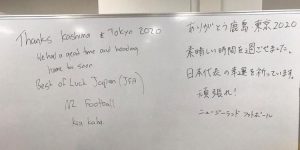 Thanks Kashima & Tokyo 2020
We had a great time and heading
home too soon
Best of Luck Japan (JFA)
NZ Football
kia kaha
ありがとう鹿島 東京2020
素晴しい時間を過ごせました。
日本代表の幸運を祈っています
頑張れ!
ニュージーランド フットボール